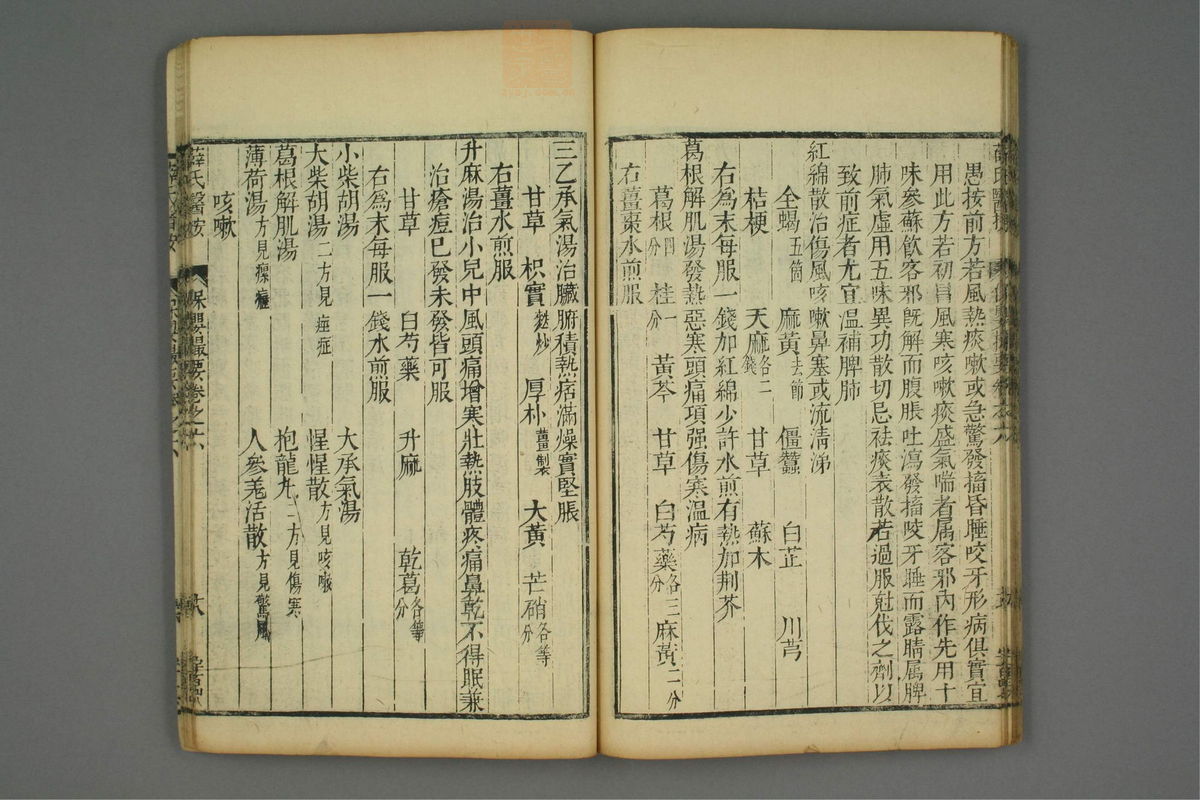 愚按前方若風熱痰嗽或急驚發搐昏睡咬牙形病俱實宜
用此方若初冒風寒咳嗽痰盛氣喘者属客邪內作先用十
味參蘇飲客邪旣解而腹脹吐瀉發搐咬牙睡而露睛属脾
肺氣虛用五味異功散切忌祛痰表散若過服尅伐之劑以
致前症者尤宜温補脾肺
紅綿散治傷風咳嗽鼻塞或流清涕
全蝎五箇 麻黃去節 僵蠶 白芷 川芎
桔梗 天麻各二錢 甘草 蘇木
右爲末每服一錢加紅綿少許水煎有熱加荆芥
葛根解肌湯發熱惡寒頭痛項强傷寒温病
葛根四分 桂一分 黃芩 甘草 白芍藥各三分 麻黃二分
右薑棗水煎服
三乙承氣湯治臟腑積熱痞滿燥實堅脹
甘草 枳實麩炒 厚朴薑製 大黃 芒硝各等分
右薑水煎服
升麻湯治小兒中風頭痛增寒壯熱肢體疼痛鼻乾不得眠兼
治瘡疽已發未發皆可服
甘草 白芍藥 升麻 乾葛各等分
右爲末每服一錢水煎服
小柴胡湯 大承氣湯
大柴胡湯二方見痙症 惺惺散方見咳嗽
葛根解肌湯 抱龍丸二方見傷寒
薄荷湯方見瘰癧 人參羌活散方見驚風
咳嗽
薛氏醫按 保嬰撮要卷之六